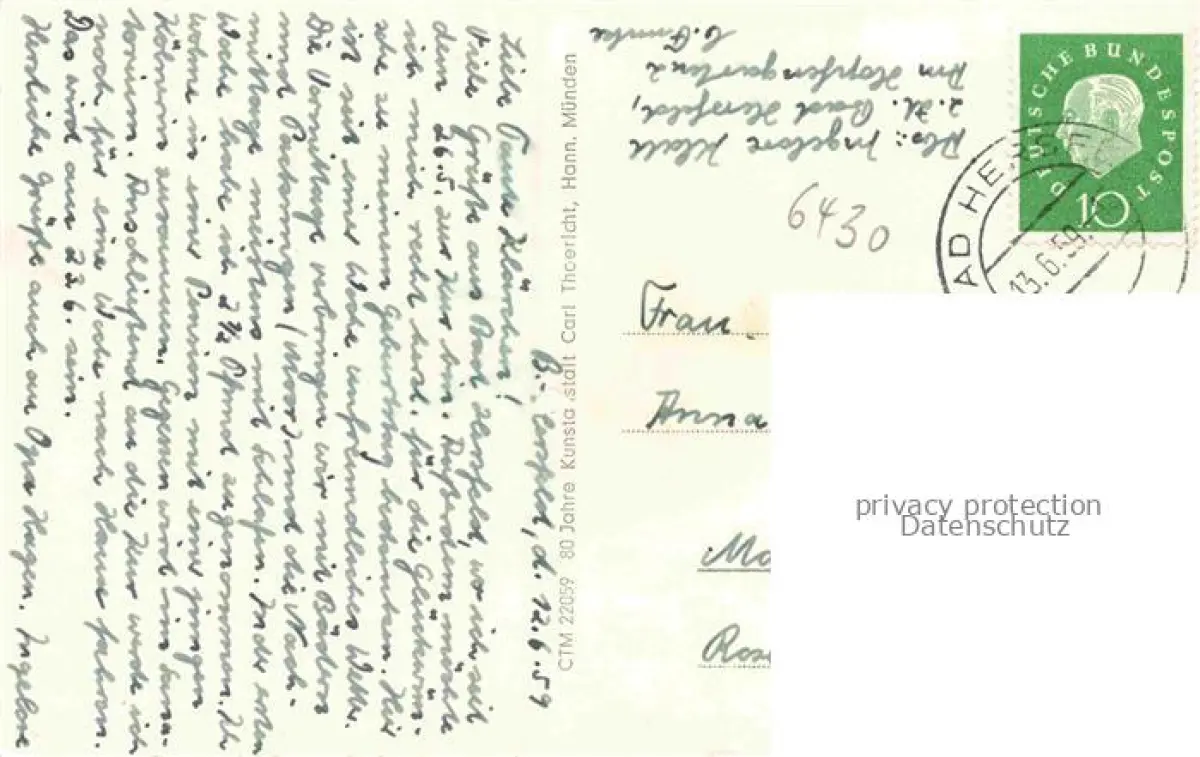 B.-Hersfeld, d. 12.6.59
Liebe Tante Klärchen!
Viele Grüße aus Bad Hersfeld, wo ich seit
dem 26.5. zur Kur bin. Außerdem möchte
ich mich recht herzl. für die Glückwün-
sche zu meinem Geburtstag bedanken. Hier
ist seit einer Woche unfreundliches Wetter.
Die Vormittage verbringen wir mit Bädern
und Packungen (Moor) und die Nach-
mittage meistens mit Schlafen. In der ersten
Woche habe ich 2½ Pfund zugenommen. Ich
wohne in einer Pension mit einer jungen
Kölnerin zusammen. Gegessen wird im
Anschließend an die Kur werde ich
noch für eine Woche nach Hause fahren.
Das wird am 23.6. sein.
Herzliche Grüße auch an Opa Hagen. Ingelore
CTM 22059 80 Jahre Kunstanstalt Carl Thoericht, Hann. Münden
Abs.: Ingelore Klatt
z. Zt. Bad Hersfeld,
Am Hopfengarten 2
b. Funke
6430
DEUTSCHE BUNDESPOST
10
BAD HERSFELD
13.6.59
Frau
Anna
Ma
Ro
privacy protection
Datenschutz